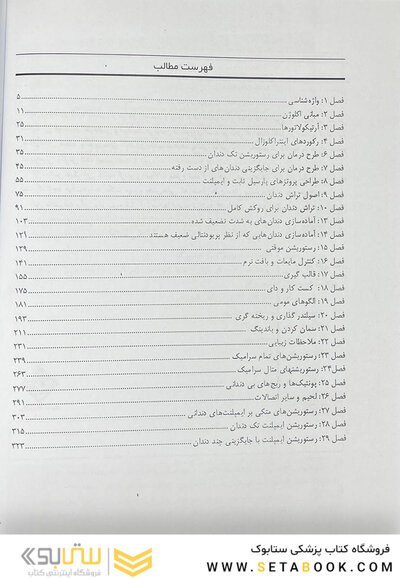 فهرست مطالب
فصل ۱: واژه‌شناسی ۵
فصل ۲: مبانی اکلوژن ۱۱
فصل ۳: آرتیکولاتورها ۲۵
فصل ۴: رکوردهای اینتراکلوزال ۳۱
فصل ۶: طرح درمان برای رستوریشن تک دندان ۳۵
فصل ۷: طرح درمان برای جایگزینی دندان‌های از دست رفته ۴۵
فصل ۸: طراحی پروتزهای پارسیل ثابت و ایمپلنت ۵۵
فصل ۹: اصول تراش دندان ۷۵
فصل ۱۰: تراش دندان برای روکش کامل ۹۱
فصل ۱۳: آماده‌سازی دندان‌های به شدت تضعیف شده ۱۰۳
فصل ۱۴: آماده‌سازی دندان‌هایی که از نظر پریودنتالی ضعیف هستند ۱۲۱
فصل ۱۵: رستوریشن موقتی ۱۲۹
فصل ۱۶: کنترل مایعات و بافت نرم ۱۴۱
فصل ۱۷: قالب گیری ۱۵۵
فصل ۱۸: کست کار و دای ۱۷۵
فصل ۱۹: الگوهای مومی ۱۸۱
فصل ۲۰: سیلندر گذاری و ریخته گری ۱۹۳
فصل ۲۱: سمان کردن و باندینگ ۲۱۱
فصل ۲۲: ملاحظات زیبایی ۲۳۱
فصل ۲۳: رستوریشن‌های تمام سرامیک ۲۳۹
فصل۲۴: رستوریشنهای متال سرامیک ۲۶۳
فصل ۲۵: پونتیک‌ها و ریج‌های بی دندانی ۲۷۷
فصل ۲۶: لحیم و سایر اتصالات ۲۹۱
فصل ۲۷: رستوریشن‌های متکی بر ایمپلنت‌های دندانی ۳۰۳
فصل ۲۸: رستوریشن ایمپلنت تک دندان ۳۱۵
فصل ۲۹: رستوریشن ایمپلنت با جایگزینی چند دندان ۳۲۳
۱
فروشگاه کتاب پزشکی ستابوک
WWW.SETABOOK.COM
ستابوک
فروشگاه اینترنتی کتاب